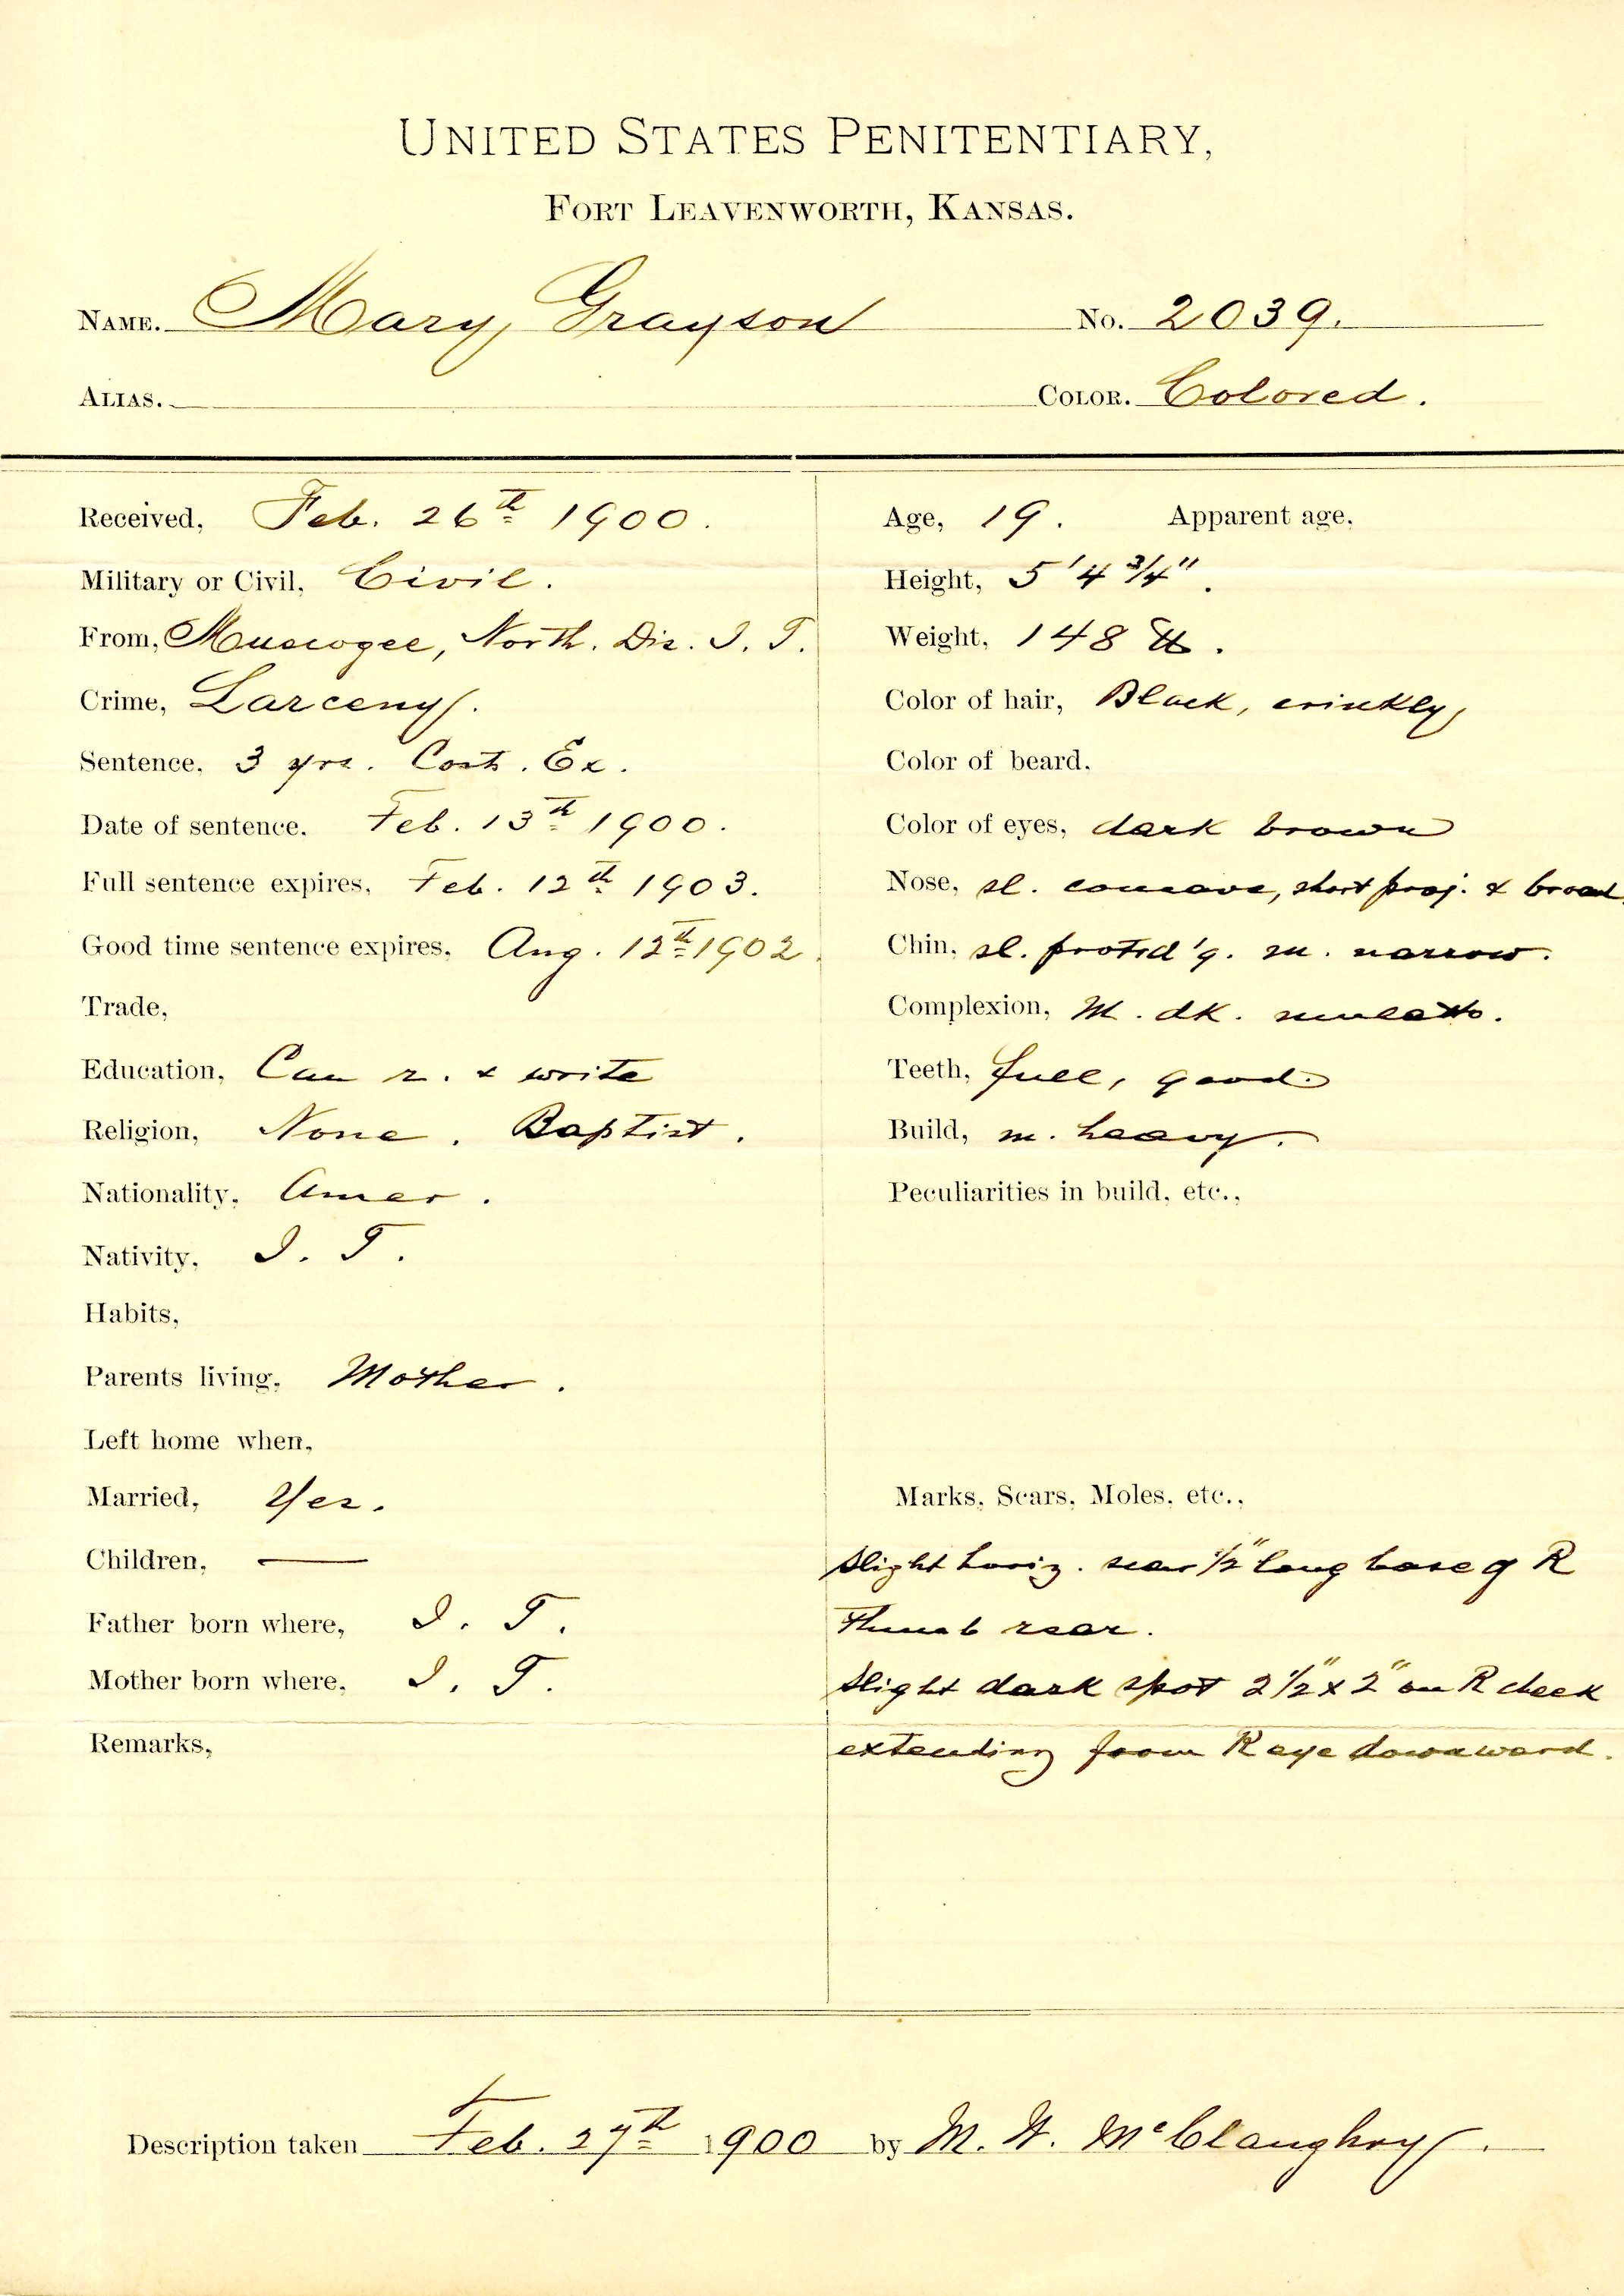 UNITED STATES PENITENTIARY,
FORT LEAVENWORTH, KANSAS.
NAME. Mary Grayson No. 2039.
ALIAS. COLOR. Colored.
Received, Feb. 26th 1900.
Military or Civil, Civil.
From, Muscogee, North. Dis. I. T.
Crime, Larceny.
Sentence, 3 yrs. Cost. Ex.
Date of sentence, Feb. 13th 1900.
Full sentence expires, Feb. 12th 1903.
Good time sentence expires, Aug. 12th 1902.
Trade,
Education, Can r. & write
Religion, None. Baptist.
Nationality, Amer.
Nativity, I. T.
Habits,
Parents living, Mother.
Left home when,
Married, Yes.
Children, —
Father born where, I. T.
Mother born where, I. T.
Remarks,
Age, 19. Apparent age,
Height, 5' 4 3/4".
Weight, 148 lb.
Color of hair, Black, crinkly,
Color of beard,
Color of eyes, dark brown
Nose, sl. concave, short proj. & broad.
Chin, sl. protrd'g. m. narrow.
Complexion, M. dk. mulatto.
Teeth, full, good.
Build, m. heavy.
Peculiarities in build, etc.,
Marks, Scars, Moles, etc.,
Slight horiz. scar 1/2" long base of R
thumb rear.
Slight dark spot 2 1/2" x 2" on R cheek
extending from R eye downward.
Description taken Feb. 27th 1900 by M. W. McClaughry.